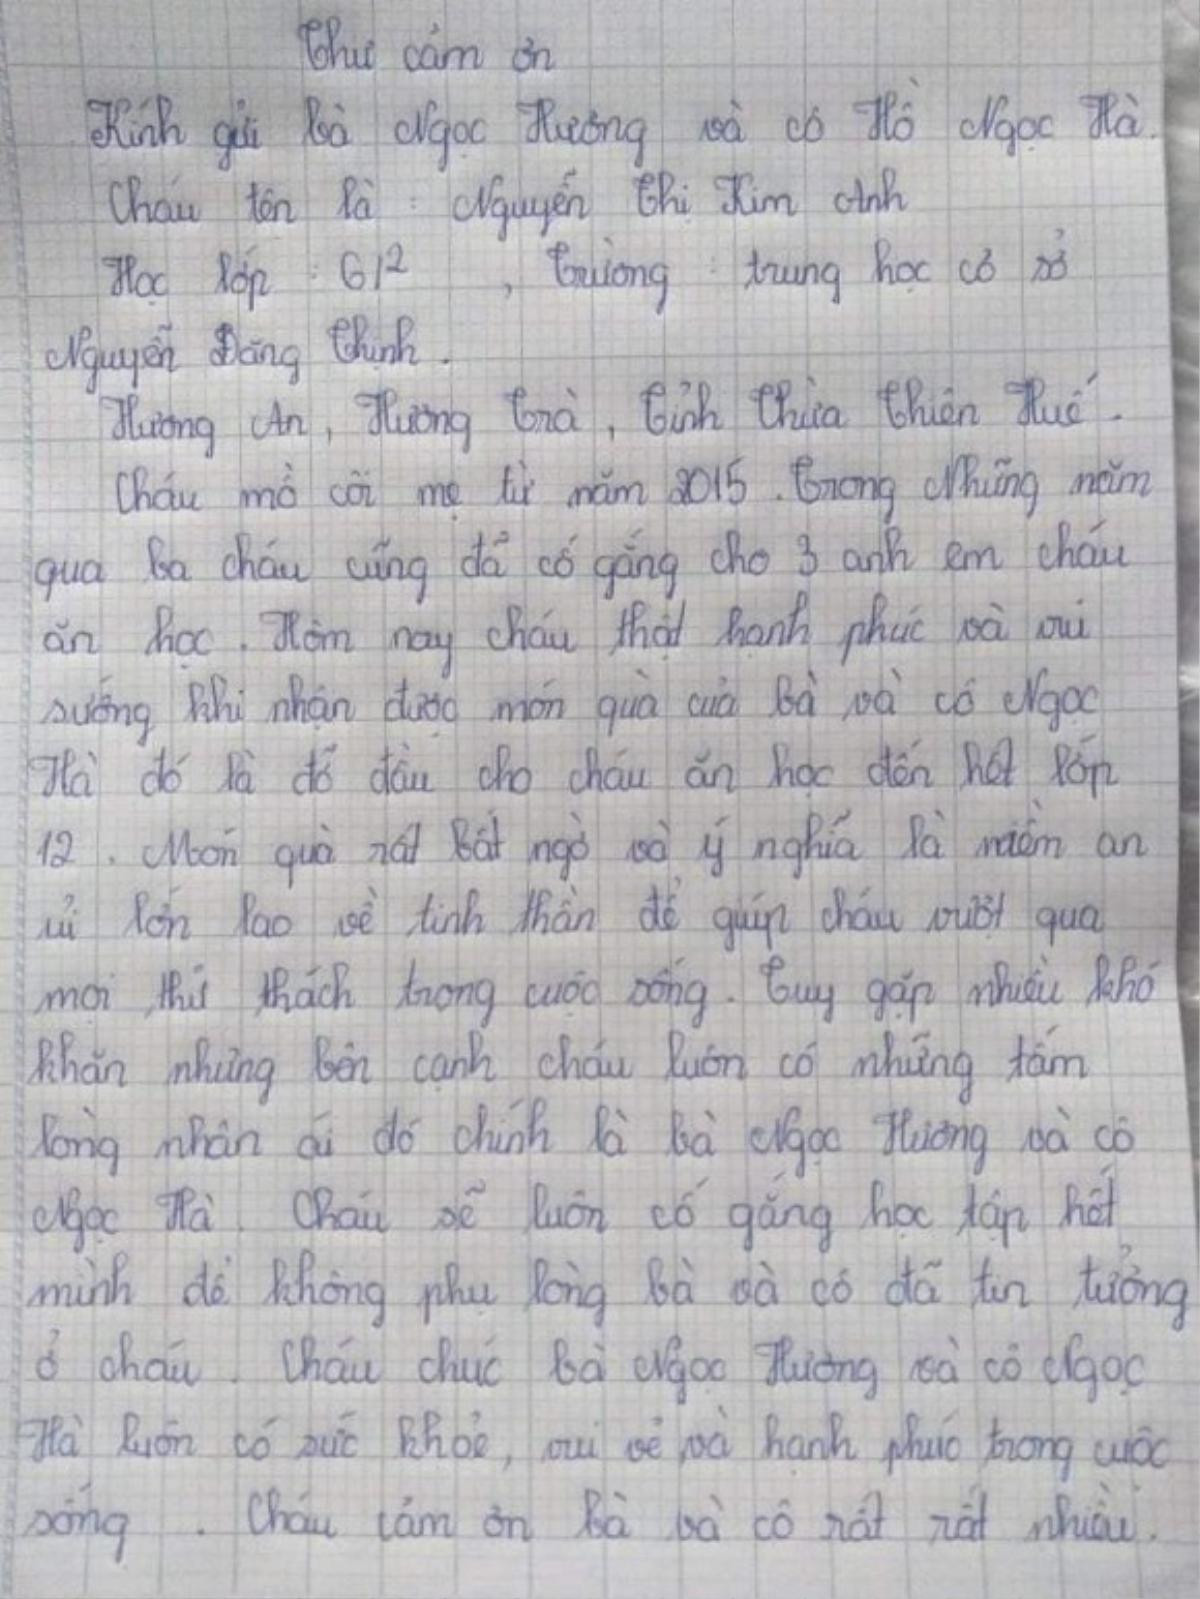 Thư cảm ơn
Kính gửi bà Ngọc Hương và cô Hồ Ngọc Hà.
Cháu tên là : Nguyễn Thị Kim Anh
Học lớp : 6/2 , Trường : trung học cơ sở
Nguyễn Đăng Thịnh .
Hương An , Hương Trà , Tỉnh Thừa Thiên Huế .
Cháu mồ côi mẹ từ năm 2015 . Trong Những năm
qua ba cháu cũng đã cố gắng cho 3 anh em cháu
ăn học . Hôm nay cháu thật hạnh phúc và vui
sướng khi nhận được món quà của bà và cô Ngọc
Hà đó là đỡ đầu cho cháu ăn học đến hết lớp
12 . Món quà rất bất ngờ và ý nghĩa là niềm an
ủi lớn lao về tinh thần để giúp cháu vượt qua
mọi thử thách trong cuộc sống . Tuy gặp nhiều khó
khăn nhưng bên cạnh cháu luôn có những tấm
lòng nhân ái đó chính là bà Ngọc Hương và cô
Ngọc Hà . Cháu sẽ luôn cố gắng học tập hết
mình để không phụ lòng bà và cô đã tin tưởng
ở cháu . Cháu chúc bà Ngọc Hương và cô Ngọc
Hà luôn có sức khỏe , vui vẻ và hạnh phúc trong cuộc
sống . Cháu cảm ơn bà và cô rất rất nhiều .